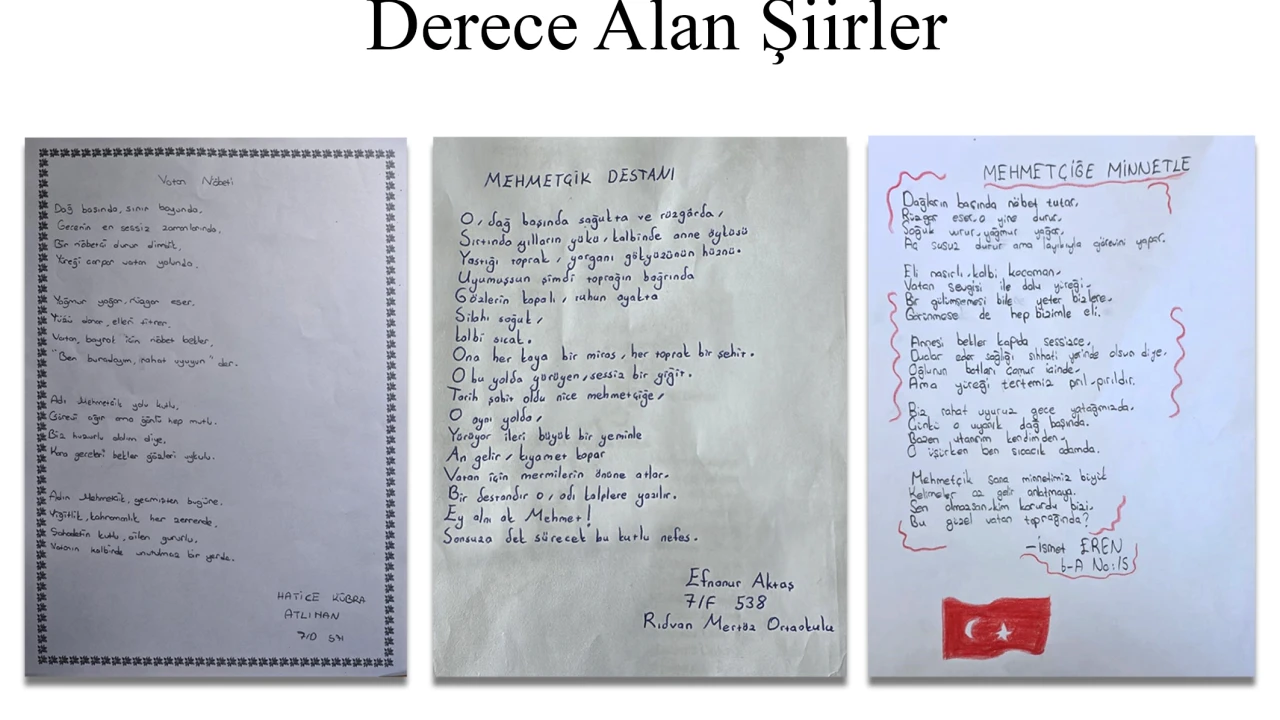 Derece Alan Şiirler
Vatan Nöbeti
Dağ başında, sınır boyunda,
Gecenin en sessiz zamanlarında,
Bir nöbetçi durur dimdik,
Yüreği çarpar vatan yolunda.
Yağmur yağar, rüzgar eser,
Yüzü donar, elleri titrer,
Vatan, bayrak için nöbet bekler,
"Ben buradayım, rahat uyuyun" der.
Adı Mehmetçik, yolu kutlu,
Görevi ağır ama gönlü hep mutlu.
Biz huzurlu olalım diye,
Kara geceleri bekler gözleri uykulu.
Adın Mehmetçik, geçmişten bugüne,
Yiğitlik, kahramanlık her zerrende,
Şahadetin kutlu, ailen gururlu,
Vatanın kalbinde unutulmaz bir yerde.
HATİCE KÜBRA
ATLIHAN
7/D 571
MEHMETÇİK DESTANI
O, dağ başında soğukta ve rüzgârda,
Sırtında yılların yükü, kalbinde anne öyküsü
Yastığı toprak, yorganı gökyüzünün hüznü.
Uyumuşsun şimdi toprağın bağrında
Gözlerin kapalı, ruhun ayakta
Silahı soğuk,
kalbi sıcak.
Ona her kaya bir miras, her toprak bir şehir.
O bu yolda yürüyen, sessiz bir yiğit.
Tarih şahit oldu nice mehmetçiğe,
O aynı yolda,
Yürüyor ileri büyük bir yeminle
An gelir, kıyamet kopar
Vatan için mermilerin önüne atlar.
Bir destandır o, adı kalplere yazılır.
Ey alnı ak Mehmet!
Sonsuza dek sürecek bu kutlu nefes.
Efnanur Aktaş
7/F 538
Rıdvan Mertöz Ortaokulu
MEHMETÇİĞE MİNNETLE
Dağların başında nöbet tutar,
Rüzgar eser, o yine durur,
Soğuk vurur, yağmur yağar,
Aç susuz durur ama layıkıyla görevini yapar.
Eli nasırlı, kalbi kocaman,
Vatan sevgisi ile dolu yüreği,
Bir gülümsemesi bile yeter bizlere,
Görünmese de hep bizimle eli.
Annesi bekler kapıda sessizce,
Dualar eder sağlığı sıhhati yerinde olsun diye,
Oğlunun botları çamur içinde,
Ama yüreği tertemiz pırıl pırıldır.
Biz rahat uyuruz gece yatağımızda,
Çünkü o uyanık dağ başında.
Bazen utanırım kendimden,
O üşürken ben sıcacık odamda.
Mehmetçik sana minnetimiz büyük
Kelimeler az gelir anlatmaya,
Sen olmazsan, kim korurdu bizi,
Bu güzel vatan toprağında?
-İsmet EREN
6-A No:15